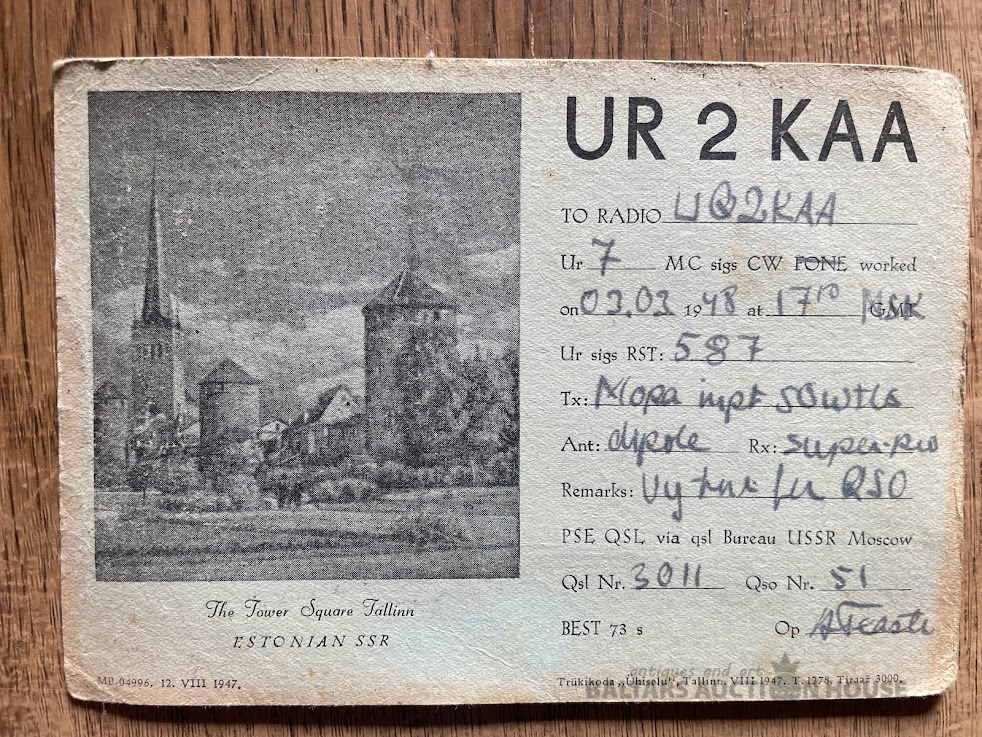 UR 2 KAA
TO RADIO UQ2KAA
Ur 7 MC sigs CW FONE worked
on 03.03 1948 at 17 10 GMT MSK
Ur sigs RST: 587
Tx: Mopa inpt 50wtts
Ant: dypole Rx: super
Remarks: Vy QSO
PSE QSL via qsl Bureau USSR Moscow
Qsl Nr. 3011 Qso Nr. 51
BEST 73 s Op
The Tower Square Tallinn
ESTONIAN SSR
MB-04996. 12. VIII 1947.
Trükikoda „Ühiselu“, Tallinn. VIII 1947. T. 1278. Tiraaž 3000.
antiques and art
BALTAKS AUCTION HOUSE